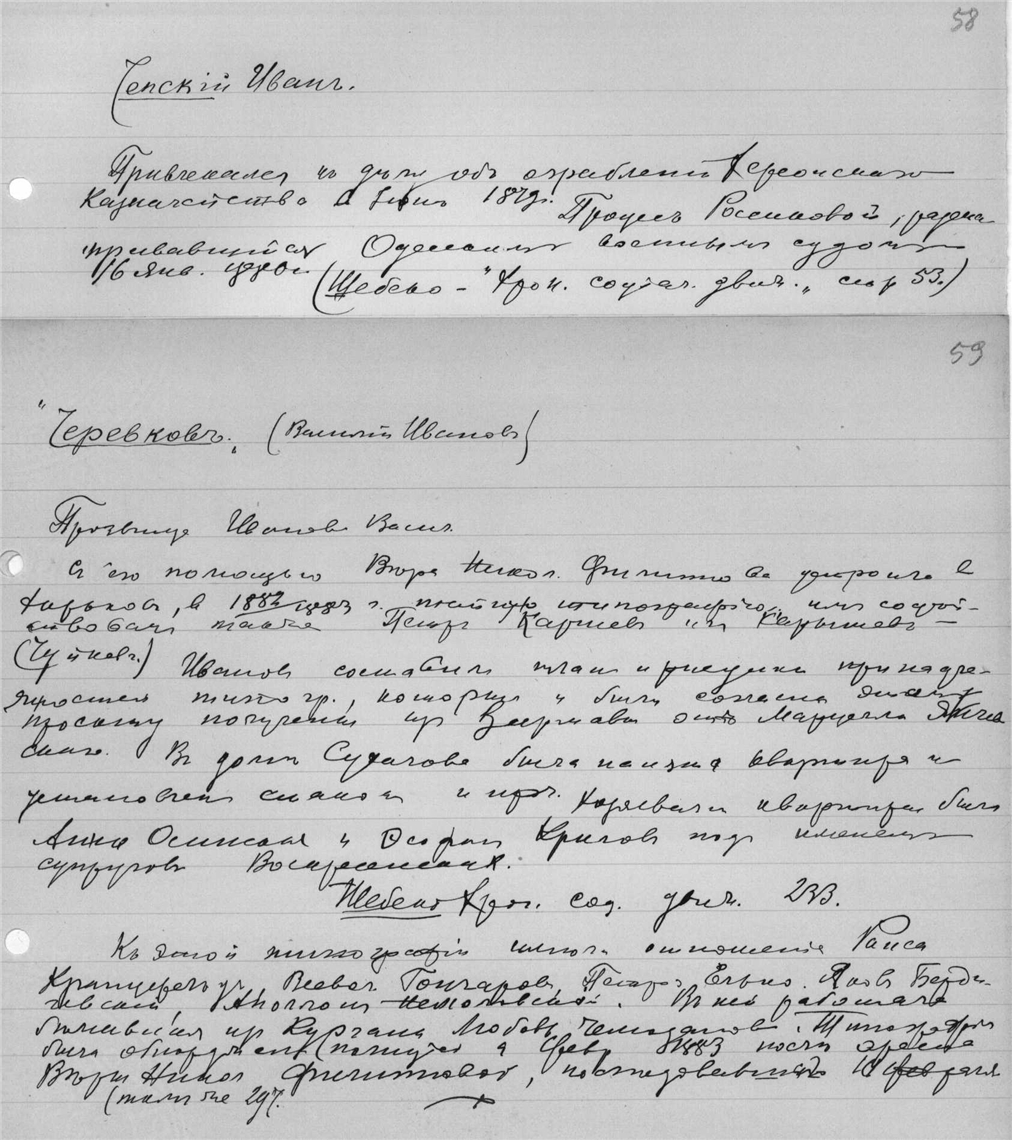 58
Чепскій Иванъ.
Привлекался къ дѣлу объ ограбленіи Херсонскаго
Казначейства в Іюнѣ 1879г.
Процессъ Россиковой, разсма-
тривавшійся Одесскимъ военнымъ судомъ
1/6 янв. 1880г.
(Шебеко – "Хрон. соціал. движ.„ стр 53.)
59
"Черевковъ„ (Василій Ивановъ)
Прозвище Иванов Васил.
С его помощью Вѣра Никол. Филиппова устроила в
Харьковѣ, в 1882 г. тайную типографію, им содѣй-
ствовали также Петръ Карпіев или Карышев –
(Чуйковъ.)
Иванов составил план и рисунки принадле-
жностей типогр., которыя и были согласно
посланы получены из Варшавы отъ Марцелла
В домѣ Сукачова была нанята квартира и
установлен станок и проч. Хозяевами квартиры были
Анна Осинская и Осафан Крылов под именем
супругов Воскресенских.
Шебеко Хрон. соц. движ. 233.
Къ этой типографіи имѣли отношеніе Раиса
Кранцфельд, Всевол. Гончаров, Петр Елько, Яков Берди-
чевскій Аполлон Немоловской. В ней работала
бѣжавшая из Кургана Любовь Чемоданова. Типографія
была обнаружена полиціей в февр 1883 послѣ ареста
Вѣры Никол Филипповой, послѣдовавшаго 10 февраля
(там же 297.